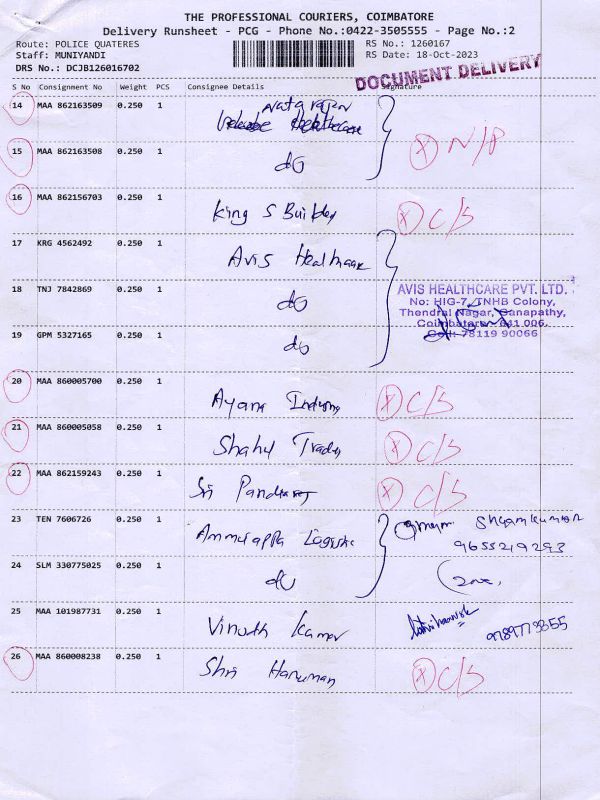 THE PROFESSIONAL COURIERS, COIMBATORE
Delivery Runsheet - PCG - Phone No.:0422-3505555 - Page No.:2
Route: POLICE QUATERES
RS No.: 1260167
Staff: MUNIYANDI
RS Date: 18-Oct-2023
DRS No.: DCJB126016702
DOCUMENT DELIVERY
S No Consignment No Weight PCS Consignee Details Signature
14 MAA 862163509 0.250 1 Natarajan
Healthcare
15 MAA 862163508 0.250 1 do N/A
16 MAA 862156703 0.250 1 King S Builder C/S
17 KRG 4562492 0.250 1 Avis Healthcare
18 TNJ 7842869 0.250 1 do
19 GPM 5327165 0.250 1 do
AVIS HEALTHCARE PVT. LTD.
No: HIG-7, TNHB Colony,
Thendral Nagar, Ganapathy,
Coimbatore- 641 006.
Cell: 78119 90066
20 MAA 860005700 0.250 1 Ayana C/S
21 MAA 860005058 0.250 1 Shahul Traders C/S
22 MAA 862159243 0.250 1 Sri C/S
23 TEN 7606726 0.250 1 Ammurappa Shyamkumar
9655219293
24 SLM 330775025 0.250 1 do
25 MAA 101987731 0.250 1 Vinoth Kumar
26 MAA 860008238 0.250 1 Shri Hanuman C/S